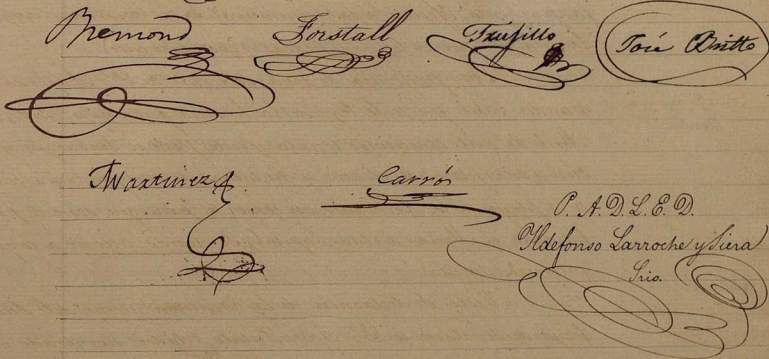 Bremond Forstall Trujillo José Britto
Martinez Carrós
P. A. D. L. E. D.
Ildefonso Larroche y Siera
Srio.